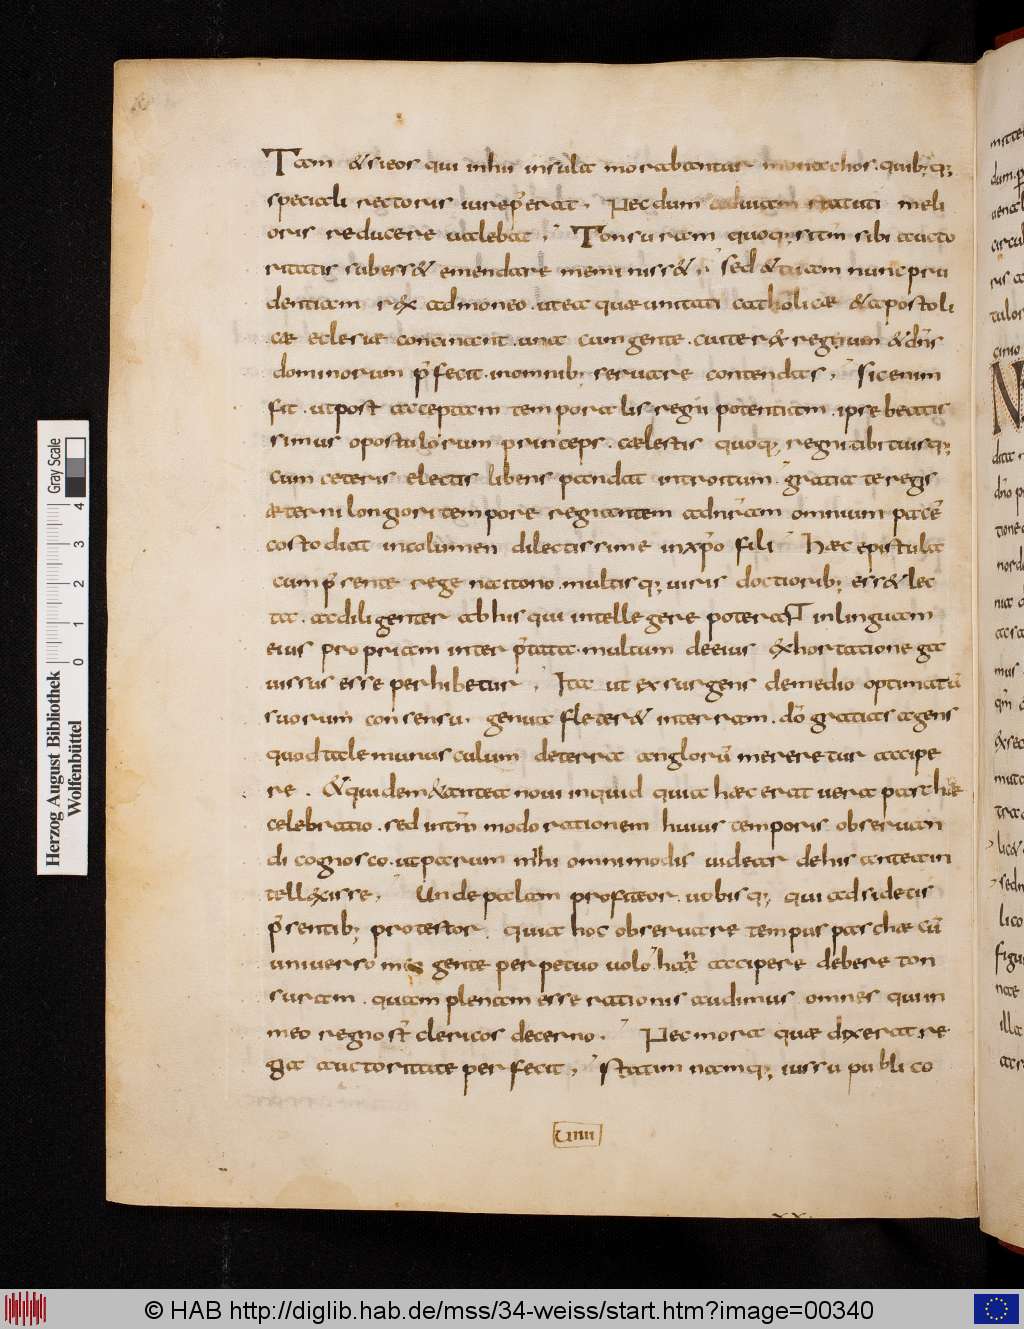 Tam & si eos qui in hii insula morabantur monachos. quib;q;
speciali rectoris iure p̄erat. Nec dum ad uiam statuti meli
oris reducere ualebat; Tonsuram quoq; si tm̄ sibi aucto
ritatis subess& emendare meminiss&; sed & tuam nunc pru
dentiam rex admoneo. ut ea quae unitati catholicae & apostoli
cae eclesiae concinant. una cum gente. cui te r& regum & dn̄s
dominorum p̄fecit. in omnib; seruare contendas; Sic enim
fit. ut post acceptam temporalis regni potentiam. ipse beatis
simus apostulorum princeps. caelestis quoq; regni tibi tuisq;
cum ceteris electis libens pandat introitum. gratia te regis
aeterni longiori tempore regnantem ad nr̄am omnium pacē
costodiat incolumen dilectissime in xp̄o fili Haec epistula
cum p̄sente rege naitono. multisq; uiris doctiorib; ess& lec
ta. ac diligenter ab his qui intellegere poterant in linguam
eius propriam interp̄tata. multum de eius exhortatione ga
uissus esse perhibetur; Ita ut exsurgens de medio optimatū
suorum consensu. genua flecter& in terram. dō gratias agens
quod tale munusculum de terra anglorū merer&ur accipe
re. & quidem & antea noui inquid quia haec erat uera paschae
celebratio. sed in tm̄ modo rationem huius temporis obseruan
di cognosco. ut parum mihi omnimodis uidear de his antea in
tellexisse; Unde palam profiteor. uobisq; qui adsidetis
p̄sentib; protestor. quia hoc obseruare tempus paschae cū
uniuerso mea gente perpetuo uolo hanc accipere debere ton
suram. quam plenam esse rationis audimus omnes qui in
meo regno st̄ clericos decerno. Nec mora quae dixerat re
gia auctoritate perfecit; statim namq; iussu publico
uiiii
Herzog August Bibliothek
Wolfenbüttel
0 1 2 3 4
Gray Scale
© HAB http://diglib.hab.de/mss/34-weiss/start.htm?image=00340